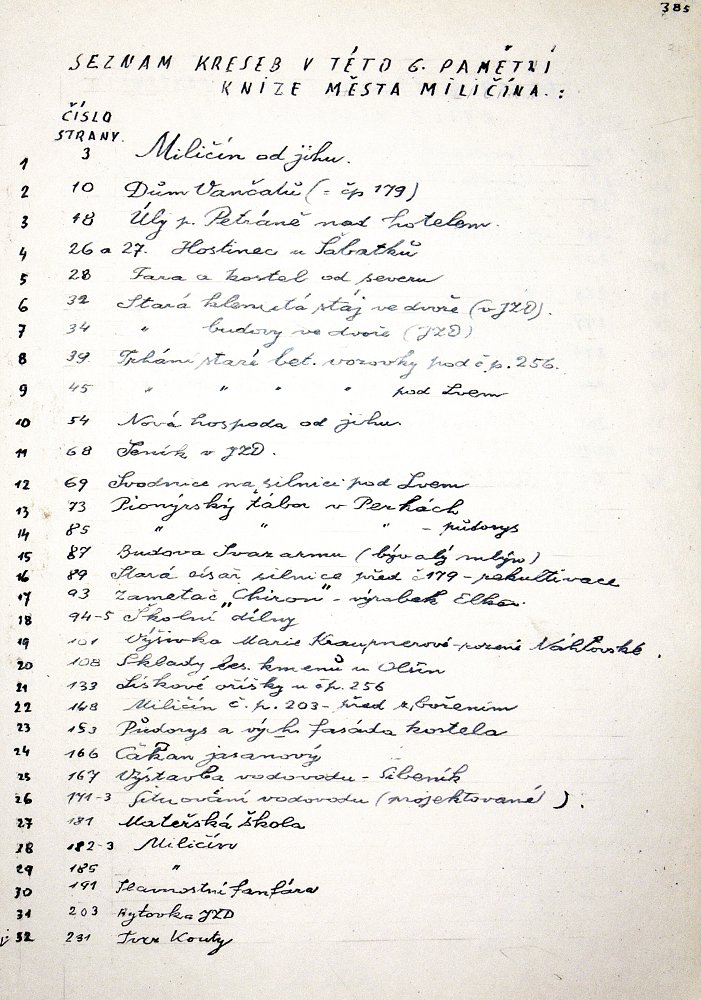 385
SEZNAM KRESEB V TÉTO 6. PAMĚTNÍ
KNIZE MĚSTA MILIČÍNA.:
ČÍSLO
STRANY.
1 3 Miličín od jihu.
2 10 Dům Vančatů (= čp 179)
3 18 Úly p. Petráně nad hotelem.
4 26 a 27. Hostinec u Sabatků
5 28 Fara a kostel od severu
6 32 Stará klenutá stáj ve dvoře (v JZD).
7 34 " budovy ve dvoře (JZD)
8 39 Trhání staré bet. vozovky pod č.p. 256.
9 45 " " " " pod Lvem
10 54 Nová hospoda od jihu.
11 68 Seník v JZD.
12 69 Svodnice na silnici pod Lvem
13 73 Pionýrský tábor v Perkách
14 85 " " " - půdorys
15 87 Budova Svazarmu (bývalý mlýn)
16 89 Stará císař. silnice před č 179 - rekultivace
17 93 Zametač "Chiron" - výrobek Elkov.
18 94-5 Školní dílny
19 101 Výšivka Marie Kraupnerové - rozené Náhlovské.
20 108 Sklady les. kmenů u Olšin
21 133 Lískové oříšky u čp. 256
22 148 Miličín č.p. 203 - před zbořením
23 153 Půdorys a vých. fasáda kostela
24 166 Cákan jasanový
25 167 Výstavba vodovodu - Šibeník
26 171-3 Situování vodovodu (projektované).
27 181 Mateřská škola
28 182-3 Miličín
29 185 "
30 191 Slavnostní fanfára
31 203 Bytovka JZD
32 231 Tvrz Kouty